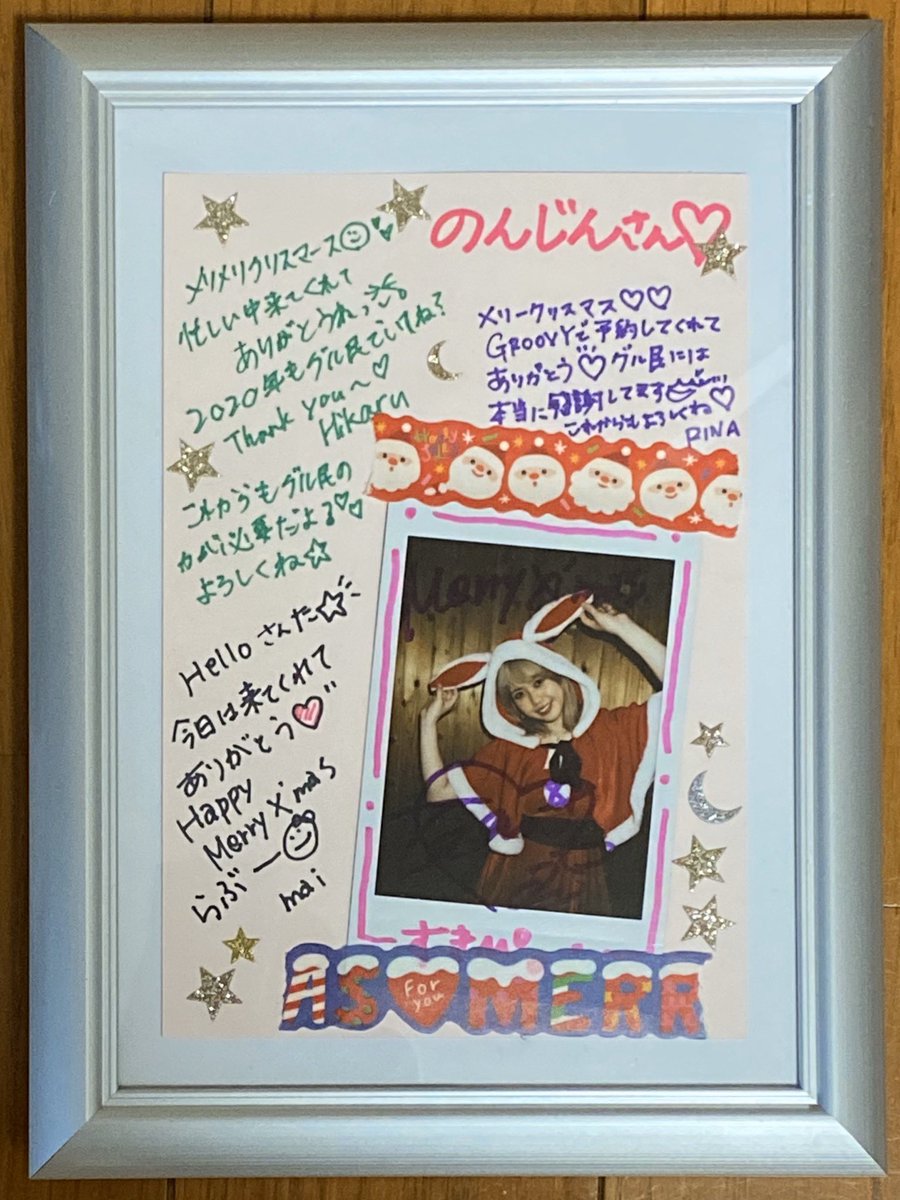 のんじんさん♡
メリメリクリスマース
忙しい中来てくれて
ありがとうれっ
2020年もグル民でいてね?
Thank you~♡
Hikaru
これからもグル民の
力が必要だよる♡♡
よろしくね☆
メリークリスマス♡♡
GROOVYで予約してくれて
ありがとう♡グル民には
本当に感謝してます
これからもよろしくね♡
RINA
Helloさんた☆
今日は来てくれて
ありがとう♡
Happy
Merry X'mas
らぶー
mai
Merry X'mas
AS♥MERR
For
you